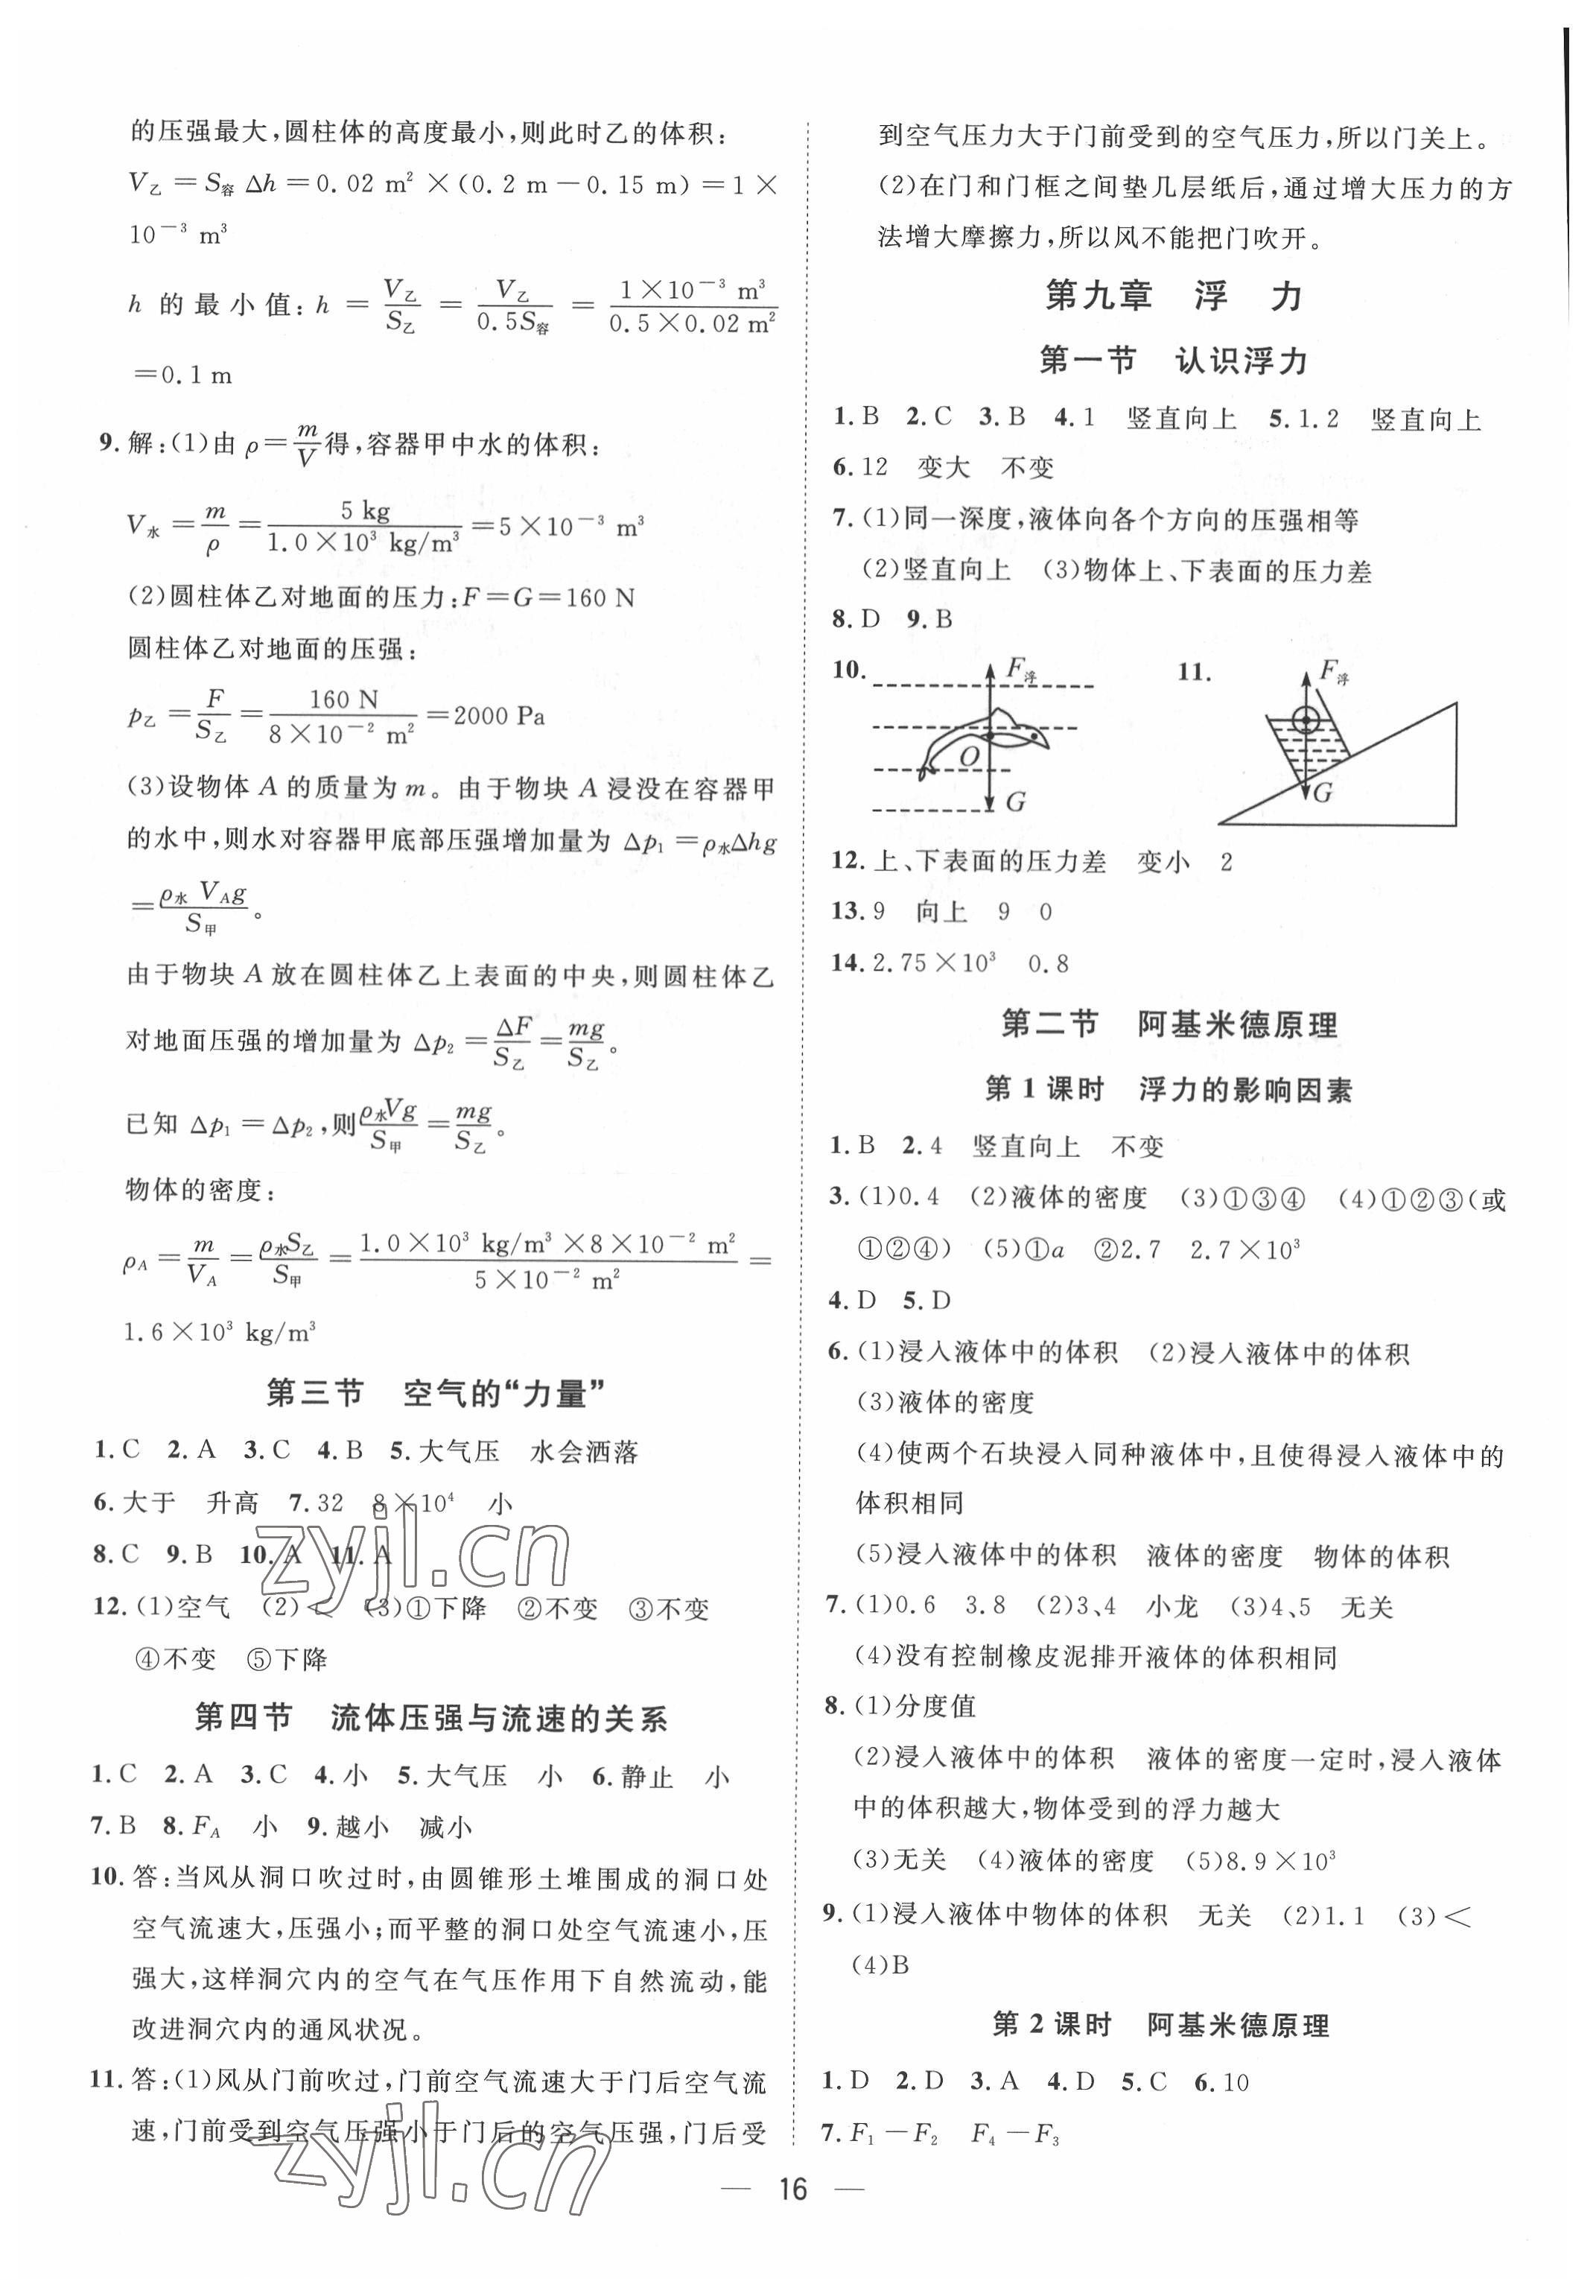 的压强最大,圆柱体的高度最小,则此时乙的体积:
V乙=S容Δh=0.02 m²×(0.2 m-0.15 m)=1×
10⁻³ m³
h 的最小值:h=V乙/S乙=V乙/0.5S容=1×10⁻³ m³/0.5×0.02 m²
=0.1 m
9.解:(1)由ρ=m/V得,容器甲中水的体积:
V水=m/ρ=5 kg/1.0×10³ kg/m³=5×10⁻³ m³
(2)圆柱体乙对地面的压力:F=G=160 N
圆柱体乙对地面的压强:
p乙=F/S乙=160 N/8×10⁻² m²=2000 Pa
(3)设物体A的质量为m。由于物块A浸没在容器甲
的水中,则水对容器甲底部压强增加量为Δp₁=ρ水Δhg
=ρ水V_A g/S甲。
由于物块A放在圆柱体乙上表面的中央,则圆柱体乙
对地面压强的增加量为Δp₂=ΔF/S乙=mg/S乙。
已知Δp₁=Δp₂,则ρ水Vg/S甲=mg/S乙。
物体的密度:
ρ_A=m/V_A=ρ水S乙/S甲=1.0×10³ kg/m³×8×10⁻² m²/5×10⁻² m²=
1.6×10³ kg/m³
第三节 空气的“力量”
1.C 2.A 3.C 4.B 5.大气压 水会洒落
6.大于 升高 7.32 8×10⁴ 小
8.C 9.B 10.A 11.A
12.(1)空气 (2)< (3)①下降 ②不变 ③不变
④不变 ⑤下降
第四节 流体压强与流速的关系
1.C 2.A 3.C 4.小 5.大气压 小 6.静止 小
7.B 8.F_A 小 9.越小 减小
10.答:当风从洞口吹过时,由圆锥形土堆围成的洞口处
空气流速大,压强小;而平整的洞口处空气流速小,压
强大,这样洞穴内的空气在气压作用下自然流动,能
改进洞穴内的通风状况。
11.答:(1)风从门前吹过,门前空气流速大于门后空气流
速,门前受到空气压强小于门后的空气压强,门后受
到空气压力大于门前受到的空气压力,所以门关上。
(2)在门和门框之间垫几层纸后,通过增大压力的方
法增大摩擦力,所以风不能把门吹开。
第九章 浮 力
第一节 认识浮力
1.B 2.C 3.B 4.1 竖直向上 5.1.2 竖直向上
6.12 变大 不变
7.(1)同一深度,液体向各个方向的压强相等
(2)竖直向上 (3)物体上、下表面的压力差
8.D 9.B
10. F浮 O G 11. F浮 G
12.上、下表面的压力差 变小 2
13.9 向上 9 0
14.2.75×10³ 0.8
第二节 阿基米德原理
第1课时 浮力的影响因素
1.B 2.4 竖直向上 不变
3.(1)0.4 (2)液体的密度 (3)①③④ (4)①②③(或
①②④) (5)①a ②2.7 2.7×10³
4.D 5.D
6.(1)浸入液体中的体积 (2)浸入液体中的体积
(3)液体的密度
(4)使两个石块浸入同种液体中,且使得浸入液体中的
体积相同
(5)浸入液体中的体积 液体的密度 物体的体积
7.(1)0.6 3.8 (2)3、4 小龙 (3)4、5 无关
(4)没有控制橡皮泥排开液体的体积相同
8.(1)分度值
(2)浸入液体中的体积 液体的密度一定时,浸入液体
中的体积越大,物体受到的浮力越大
(3)无关 (4)液体的密度 (5)8.9×10³
9.(1)浸入液体中物体的体积 无关 (2)1.1 (3)<
(4)B
第2课时 阿基米德原理
1.D 2.D 3.A 4.D 5.C 6.10
7.F₁-F₂ F₄-F₃
— 16 —
zyjl.cn
zyjl.cn